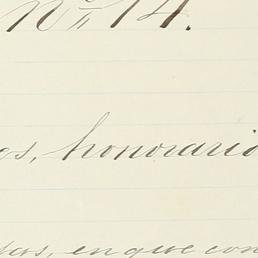 Nº 14.
os, honorario
das, en que con